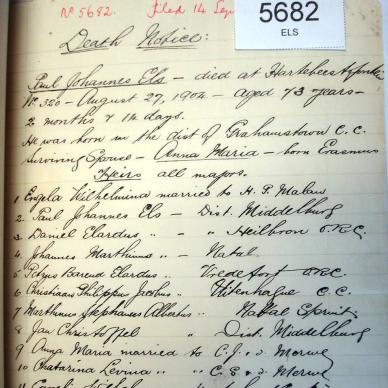 No 5682. Filed 14 Sep
5682
ELS
Death Notice:
Paul Johannes Els - died at Hartebeestfontein
No. 320 - August 27, 1904 - aged 73 years -
2 months & 14 days.
He was born in the dist of Grahamstown C.C.
Surviving Spouse - Anna Maria - born Erasmus
Heirs all majors.
1 Engela Wilhelmina married to H. P. Malan
2 Paul Johannes Els - Dist. Middelburg
3 Daniel Elardus " " Heilbron O.R.C.
4 Johannes Marthinus " - Natal
5 Petrus Barend Elardus " Vredefort O.R.C.
6 Christiaan Philippus Jacobus " Uitenhague C.C.
7 Marthinus Stephanus Albertus " Natal Spruit
8 Jan Christoffel " Dist. Middelburg
9 Anna Maria married to C. J. v. d. Merwe
10 Chatarina Levina " " C. E. v. d. Merwe
11